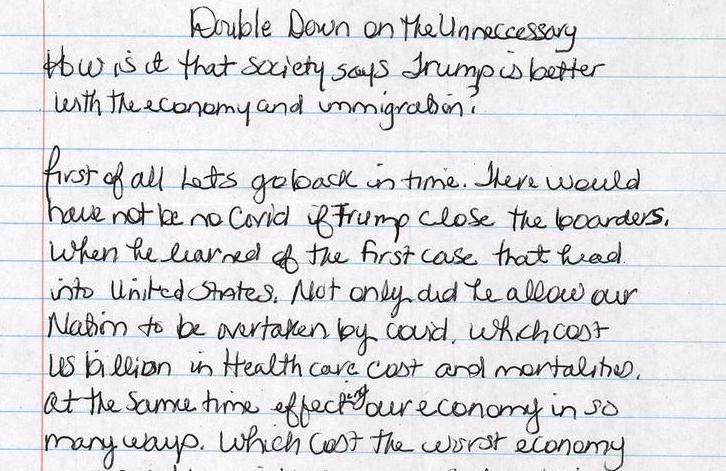 Double Down on the Unneccessary
How is it that society says Trump is better
with the economy and immigration?
first of all Lets go back in time. There would
have not be no Covid if Trump close the boarders.
When he learned of the first case that head
into United States. Not only did he allow our
Nation to be overtaken by covid. Which cost
us billion in Health care cost and mortalities.
at the same time effecting our economy in so
many ways. Which cost the worst economy